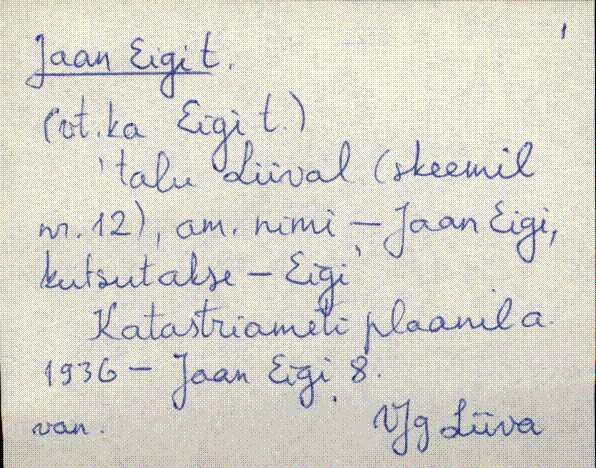 Jaan Eigi t.
(vt. ka Eigi t.)
'talu Liival (skeemil
nr. 12), am. nimi – Jaan Eigi,
kutsutakse – Eigi'
Katastriameti plaanil a.
1936 – Jaan Eigi 8.
van. VJg Liiva